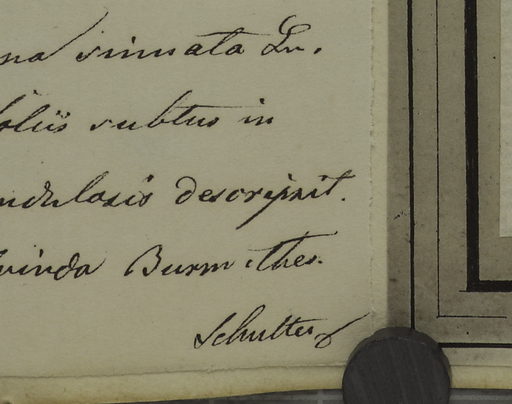 na sinuata Lu.
foliis subtus in
ndulosis descripsit.
Burm. thes.
Schultes